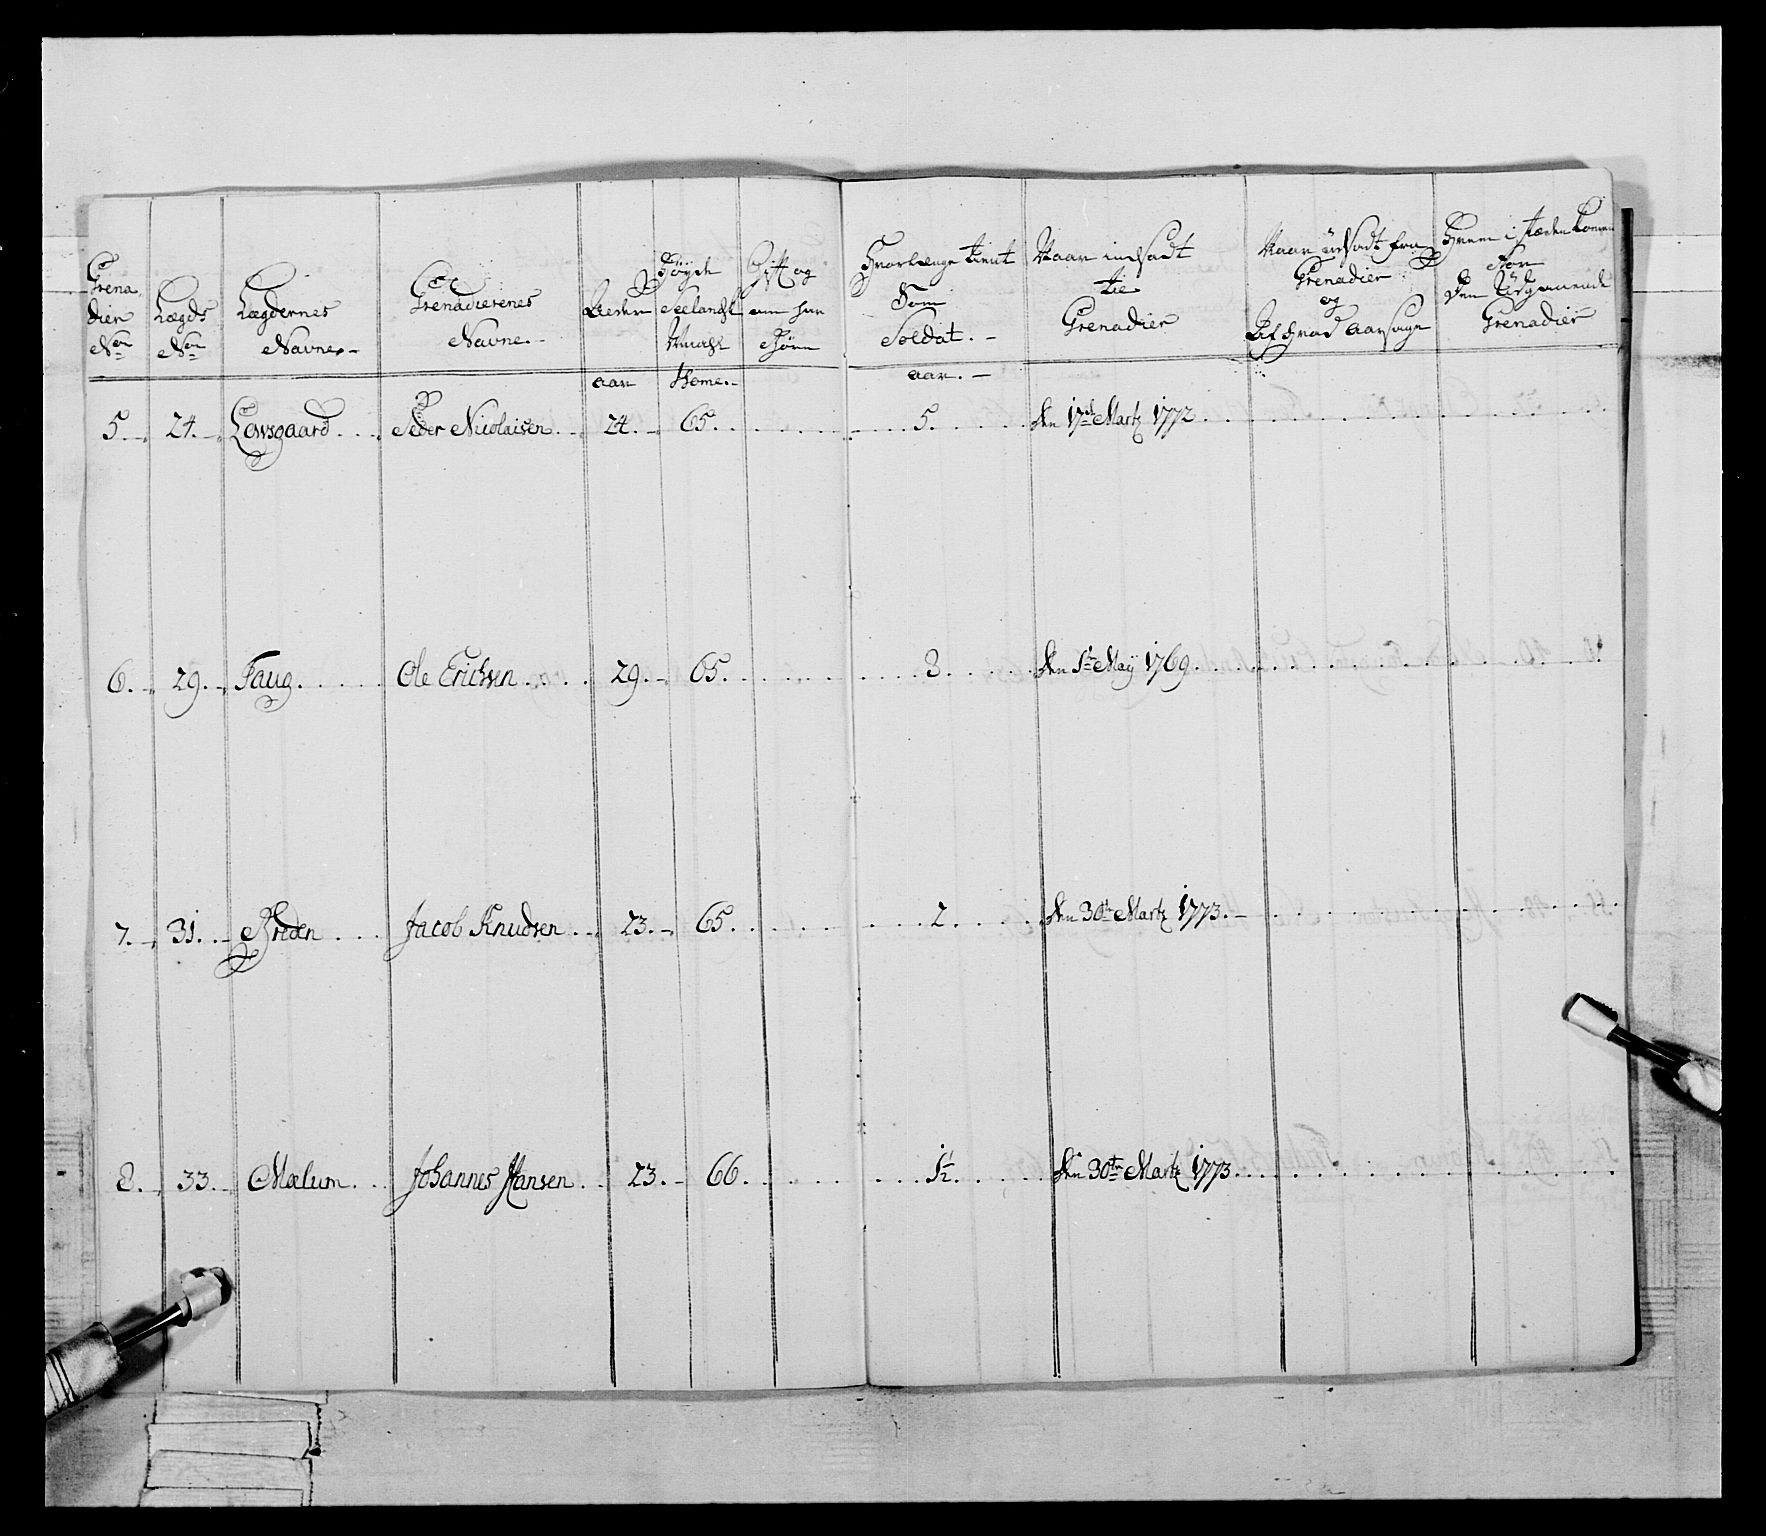 Grena
dier
No
Lægds
No
Lægdernes
Navne.-
Grenadierenes
Navne.-
Alder
Høyde
Seelandsk
Maahl
Gift og
om har
Børn
Hvorlænge tient
Som
Soldat.-
Naar indsadt
til
Grenadier
Naar udsadt fra
Grenadier
og
Af hvad Aarsage
Hvem i stæden kommen
for
den Udgaaende
Grenadier
aar Tome.- aar.-
5. 24. Lowsgaard. Peder Nicolaisen. 24. 65. 5. den 17de Martz 1772.
6. 29. Faug. Ole Erichsen. 29. 65. 3. den 1te Maÿ 1769.
7. 31. Breden Jacob Knudsen. 23. 65. 2. den 30te Martz 1773.-
8. 33. Mælum. Johannes Hansen. 23. 66. 1/2. den 30te Martz 1773.